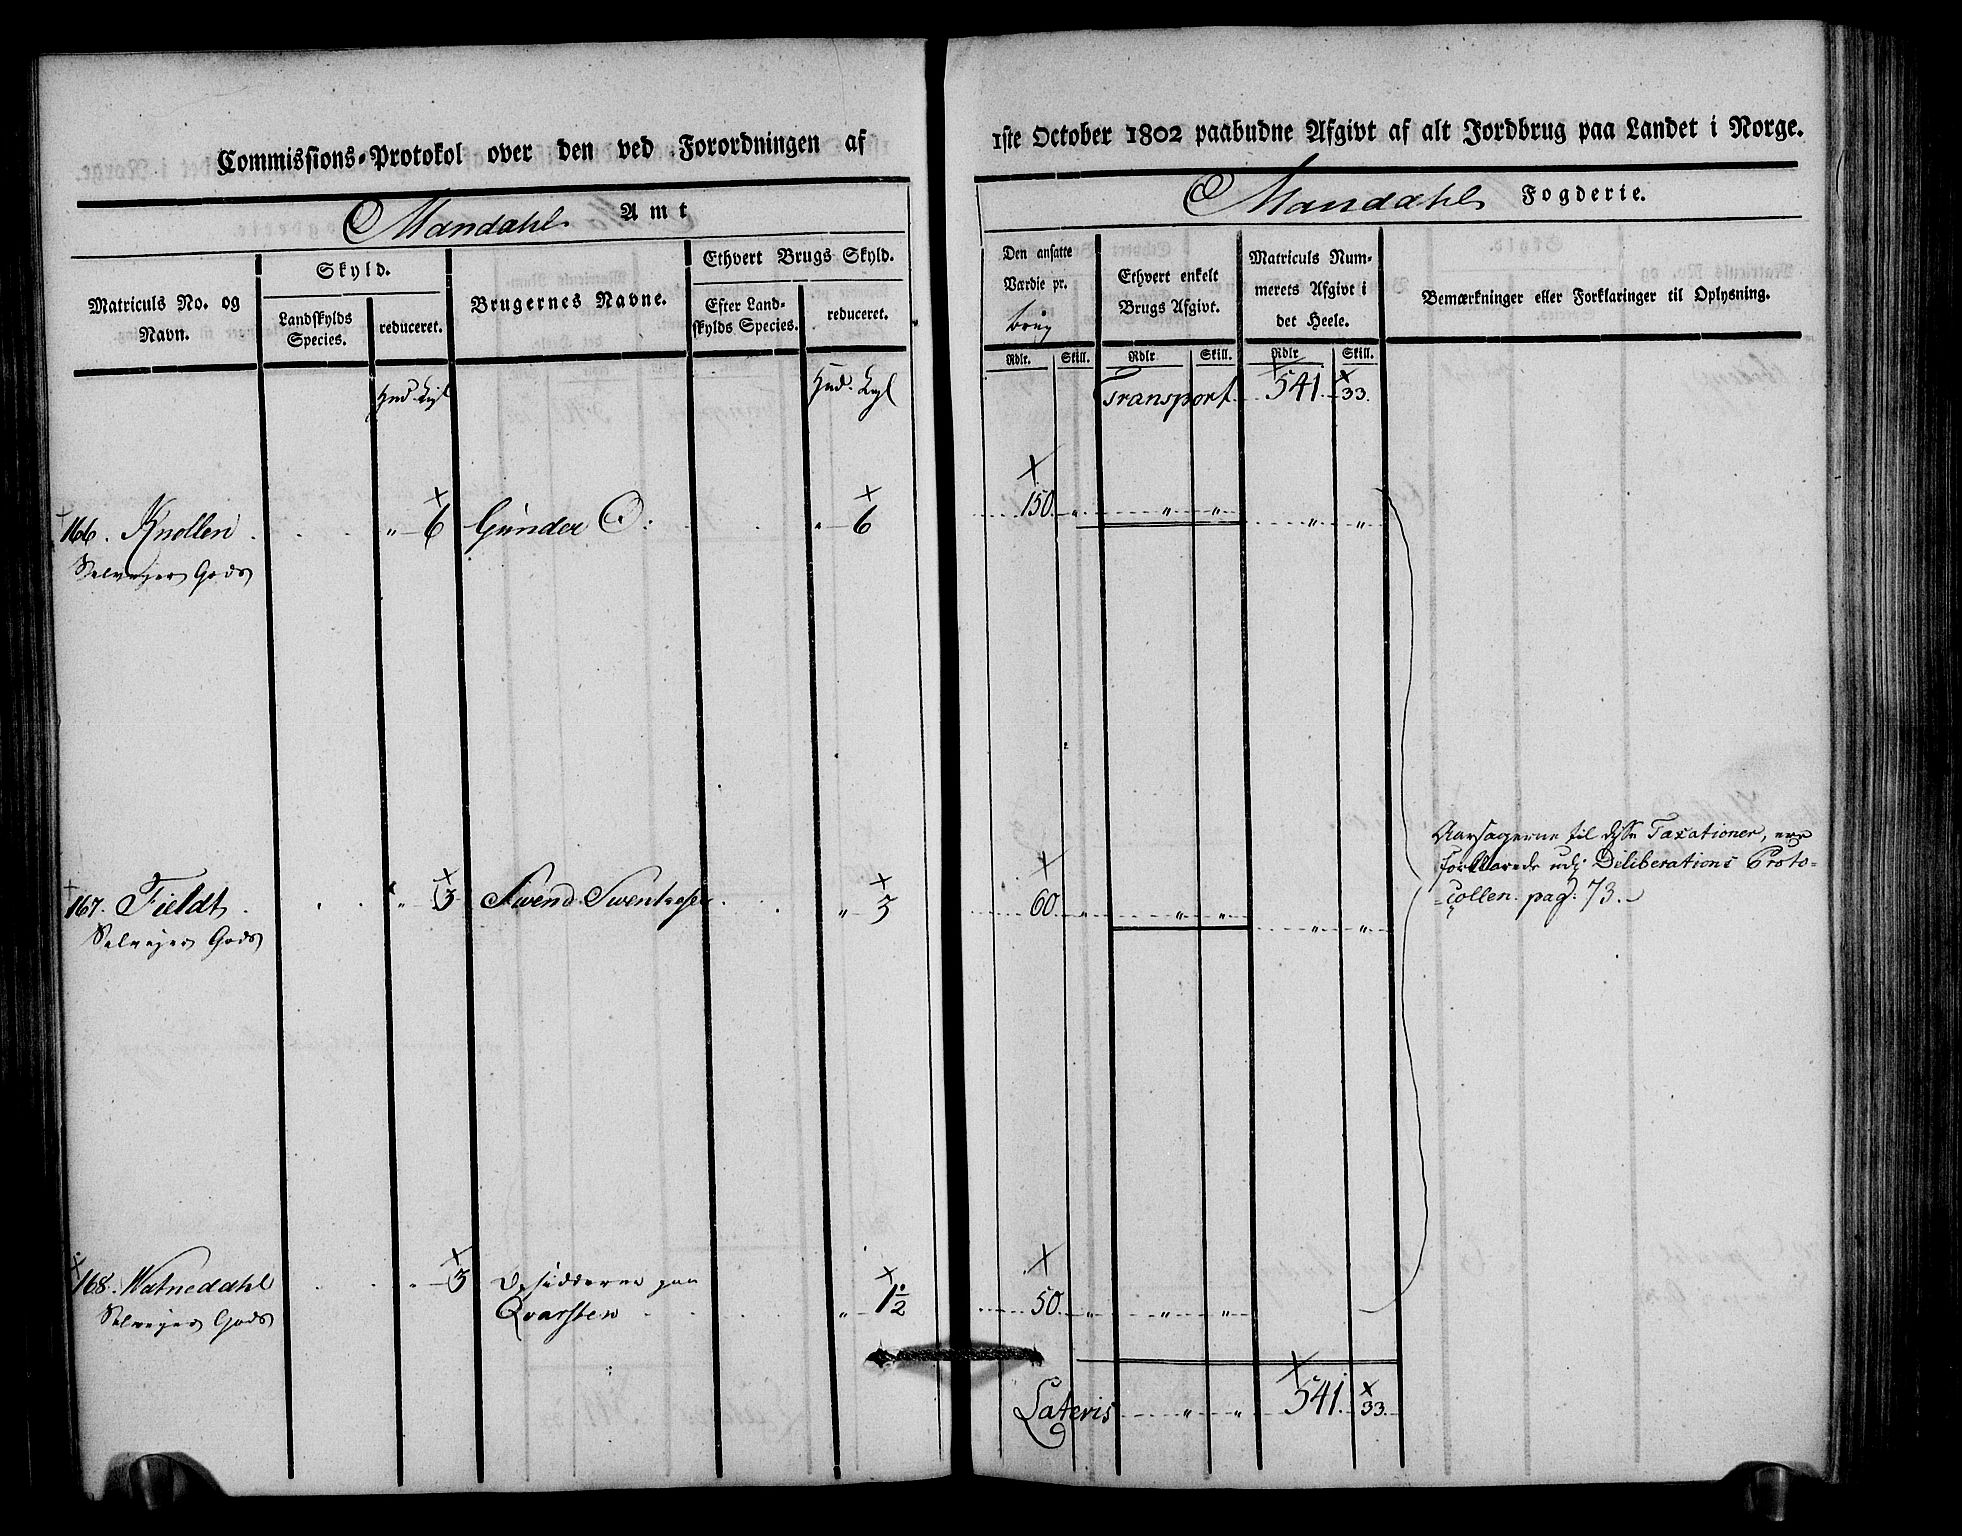 Commissions-Protokol over den ved Forordningen af
Mandahls Amt
Matriculs No. og Navn.
Skyld.
Landskylds Species.
reduceret.
Brugernes Navne.
Ethvert Brugs Skyld.
Efter Landskylds Species.
reduceret.
166. Knollen . . . „ 6 Gunder O: . . „ 6
Selveyer Gods
167. Fieldt . . . „ 3 Swend Swentsen . . „ 3
Selveyer Gods
168. Watneddahl . . „ 3 Opsidderne paa
Selveyer Gods Qvarsten . . „ 1 1/2
1ste October 1802 paabudne Afgivt af alt Jordbrug paa Landet i Norge.
Mandahls Fogderie.
Den ansatte Værdie pr. brug
Rdlr. Skill.
Ethvert enkelt Brugs Afgivt.
Rdlr Skill.
Matriculs Nummerets Afgivt i det Heele.
Rdlr Skill.
Bemærkninger eller Forklaringer til Oplysning.
Transport 541. 33.
150. „ „ „ „ „
60. „ „ „ „ „
Aarsagerne til disse Taxationer, ere
forklarede udj Deliberations Proto-
collen. pag: 73.
50. „ „ „
Lateris „ „ 541. 33.